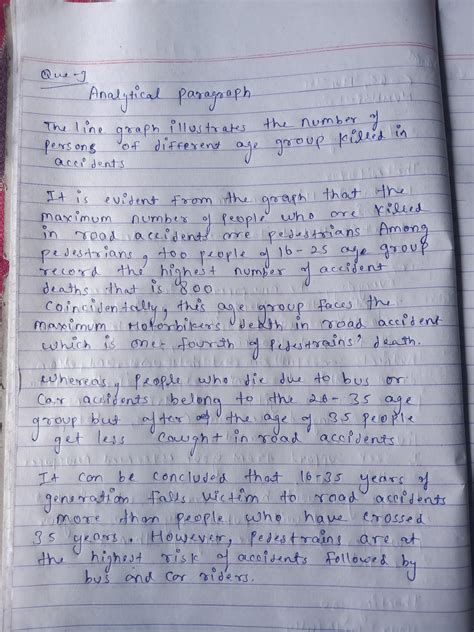 Que-1
Analytical paragraph
The line graph illustrates the number of
persons of different age group killed in
accidents
It is evident from the graph that the
maximum number of people who are killed
in road accidents are pedestrians Among
pedestrians, too people of 16-25 age group
record the highest number of accident
deaths that is 800
Coincidentally, this age group faces the
maximum Motorbikers death in road accident
which is one-fourth of pedestrains' death.
Whereas, people who die due to bus or
car accidents belong to the 26-35 age
group but after the age of 35 people
get less caught in road accidents
It can be concluded that 16-35 years of
generation falls victim to road accidents
more than people who have crossed
35 years. However, pedestrains are at
the highest risk of accidents followed by
bus and car riders.